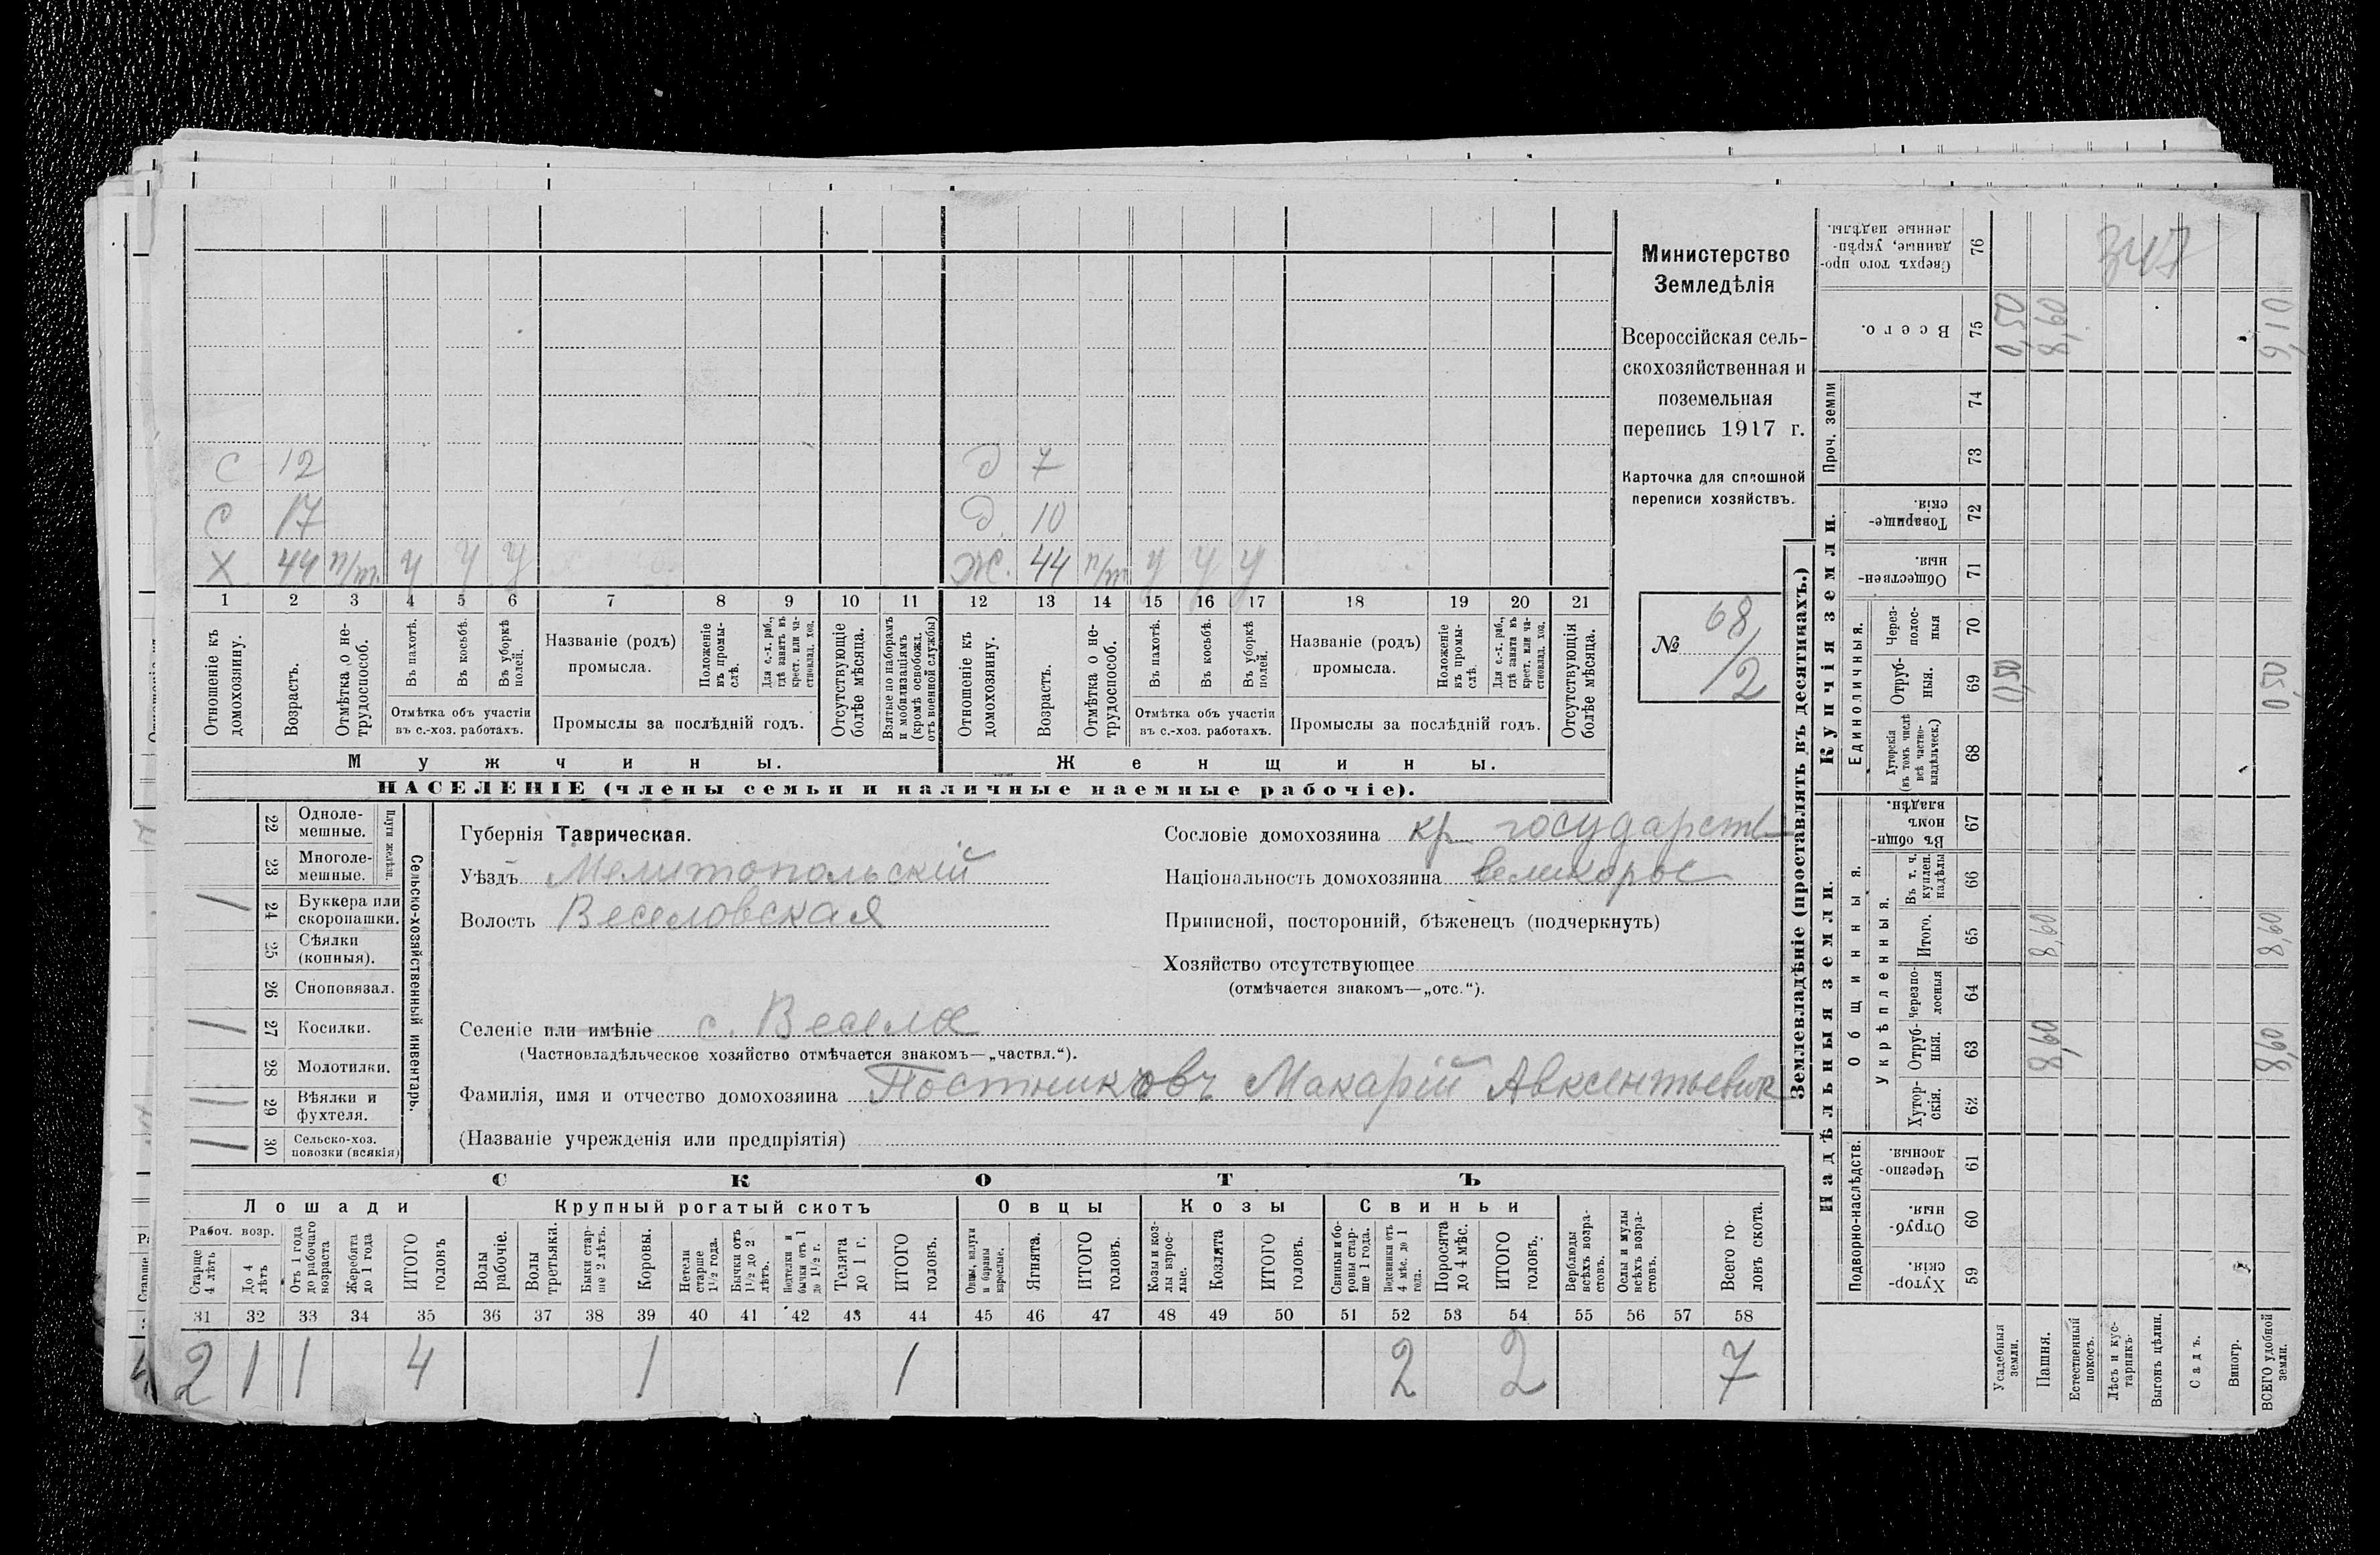 Министерство
Земледѣлія
Всероссійская сель-
скохозяйственная и
поземельная
перепись 1917 г.
Карточка для сплошной
переписи хозяйствъ.
№ 68/2
С 12
С 17
Х 44 п/т у у у
Д 7
Д. 10
Ж. 44 п/т у у у
1 2 3 4 5 6 7 8 9 10 11 12 13 14 15 16 17 18 19 20 21
Отношеніе къ домохозяину.
Возрастъ.
Отмѣтка о не-трудоспособ.
Въ пахотѣ.
Въ косьбѣ.
Въ уборкѣ полей.
Отмѣтка объ участіи
въ с.-хоз. работахъ.
Названіе (родъ)
промысла.
Положеніе въ промы-слѣ.
Для с.-х. раб., гдѣ занятъ въ крест. или ча-стновлад. хоз.
Промыслы за послѣдній годъ.
Отсутствующіе болѣе мѣсяца.
Взятые по наборамъ и мобилизаціямъ (кромѣ освобожд. отъ военной службы)
Отношеніе къ домохозяину.
Возрастъ.
Отмѣтка о не-трудоспособ.
Въ пахотѣ.
Въ косьбѣ.
Въ уборкѣ полей.
Отмѣтка объ участіи
въ с.-хоз. работахъ.
Названіе (родъ)
промысла.
Положеніе въ промы-слѣ.
Для с.-х. раб., гдѣ занята въ крест. или ча-стновлад. хоз.
Промыслы за послѣдній годъ.
Отсутствующія болѣе мѣсяца.
Мужчины.
Женщины.
НАСЕЛЕНІЕ (члены семьи и наличные наемные рабочіе).
Сельско-хозяйственный инвентарь.
Плуги желѣзн.
22 Одноле-мешные.
23 Многоле-мешные.
24 Буккера или скоропашки. 1
25 Сѣялки (конныя).
26 Сноповязал.
27 Косилки. 1
28 Молотилки.
29 Вѣялки и фухтеля. 1
30 Сельско-хоз. повозки (всякія) 1
Губернія Таврическая.
Уѣздъ Мелитопольскій
Волость Веселовская
Сословіе домохозяина кр государств
Національность домохозяина великорос
Приписной, посторонній, бѣженецъ (подчеркнуть)
Хозяйство отсутствующее
(отмѣчается знакомъ—„отс.“).
Селеніе или имѣніе с. Веселое
(Частновладѣльческое хозяйство отмѣчается знакомъ—„частвл.“).
Фамилія, имя и отчество домохозяина Постниковъ Макарій Авксентьевич
(Названіе учрежденія или предпріятія)
СКОТЪ
Лошади
Крупный рогатый скотъ
Овцы
Козы
Свиньи
Рабоч. возр.
Старше 4 лѣтъ
До 4 лѣтъ
Отъ 1 года до рабочаго возраста
Жеребята до 1 года
ИТОГО головъ
Волы рабочіе.
Волы третьяки.
Быки стар-ше 2 лѣтъ.
Коровы.
Нетели старше 1½ года.
Бычки отъ 1½ до 2 лѣтъ.
Подтелки и бычки отъ 1 до 1½ г.
Телята до 1 г.
ИТОГО головъ.
Овцы, валухи и бараны взрослые.
Ягнята.
ИТОГО головъ.
Козы и коз-лы взрос-лые.
Козлята
ИТОГО головъ.
Свиньи и бо-ровы стар-ше 1 года.
Подсвинки отъ 4 мѣс. до 1 года.
Поросята до 4 мѣс.
ИТОГО головъ.
Верблюды всѣхъ возра-стовъ.
Ослы и мулы всѣхъ возра-стовъ.
Всего го-ловъ скота.
31 32 33 34 35 36 37 38 39 40 41 42 43 44 45 46 47 48 49 50 51 52 53 54 55 56 57 58
2 1 1 4 1 1 2 2 7
Землевладѣніе (проставлять въ десятинахъ.)
Надѣльныя земли.
Купчія земли.
Проч. земли
Подворно-наслѣдств.
Общинныя.
Укрѣпленныя.
Единоличныя.
Хутор-скія. 59
Отруб-ныя. 60
Черезпо-лосныя. 61
Хутор-скія. 62
Отруб-ныя. 63
Черезпо-лосныя 64
Итого. 65
Въ т. ч. куплен. надѣлы 66
Въ общин-номъ владѣн. 67
Хуторскія (въ томъ числѣ всѣ частно-владѣльческ.) 68
Отруб-ныя. 69
Через-полос-ныя 70
Обществен-ныя. 71
Товарище-скія. 72
73
74
Всего. 75
Сверхъ того про-данные, укрѣп-ленные надѣлы. 76
Усадебныя земли. 0,50 0,50
Пашня. 8,60 8,60 8,60
Естественный покосъ.
Лѣсъ и кус-тарникъ.
Выгонъ цѣлин.
Садъ.
Виногр.
ВСЕГО удобной земли. 8,60 8,60 0,50 9,10
347